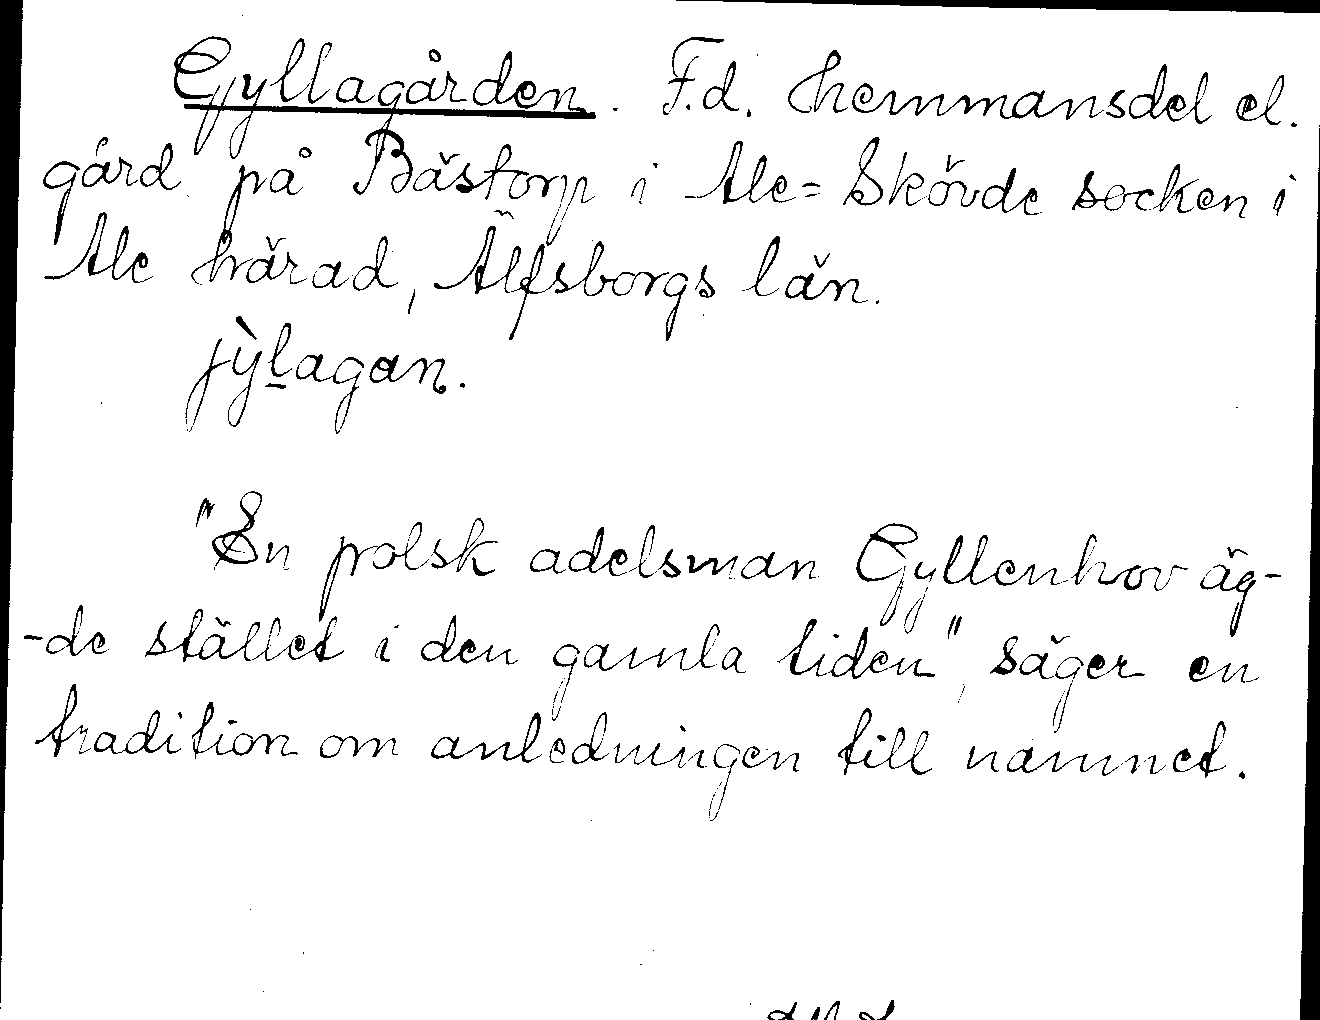 Gyllagården. F.d. hemmansdel el.
gård på Bästorp i Ale=Skövde socken i
Ale härad, Älfsborgs län.
jỳḻagan.
"En polsk adelsman Gyllenhov äg-
-de stället i den gamla tiden", säger en
tradition om anledningen till namnet.